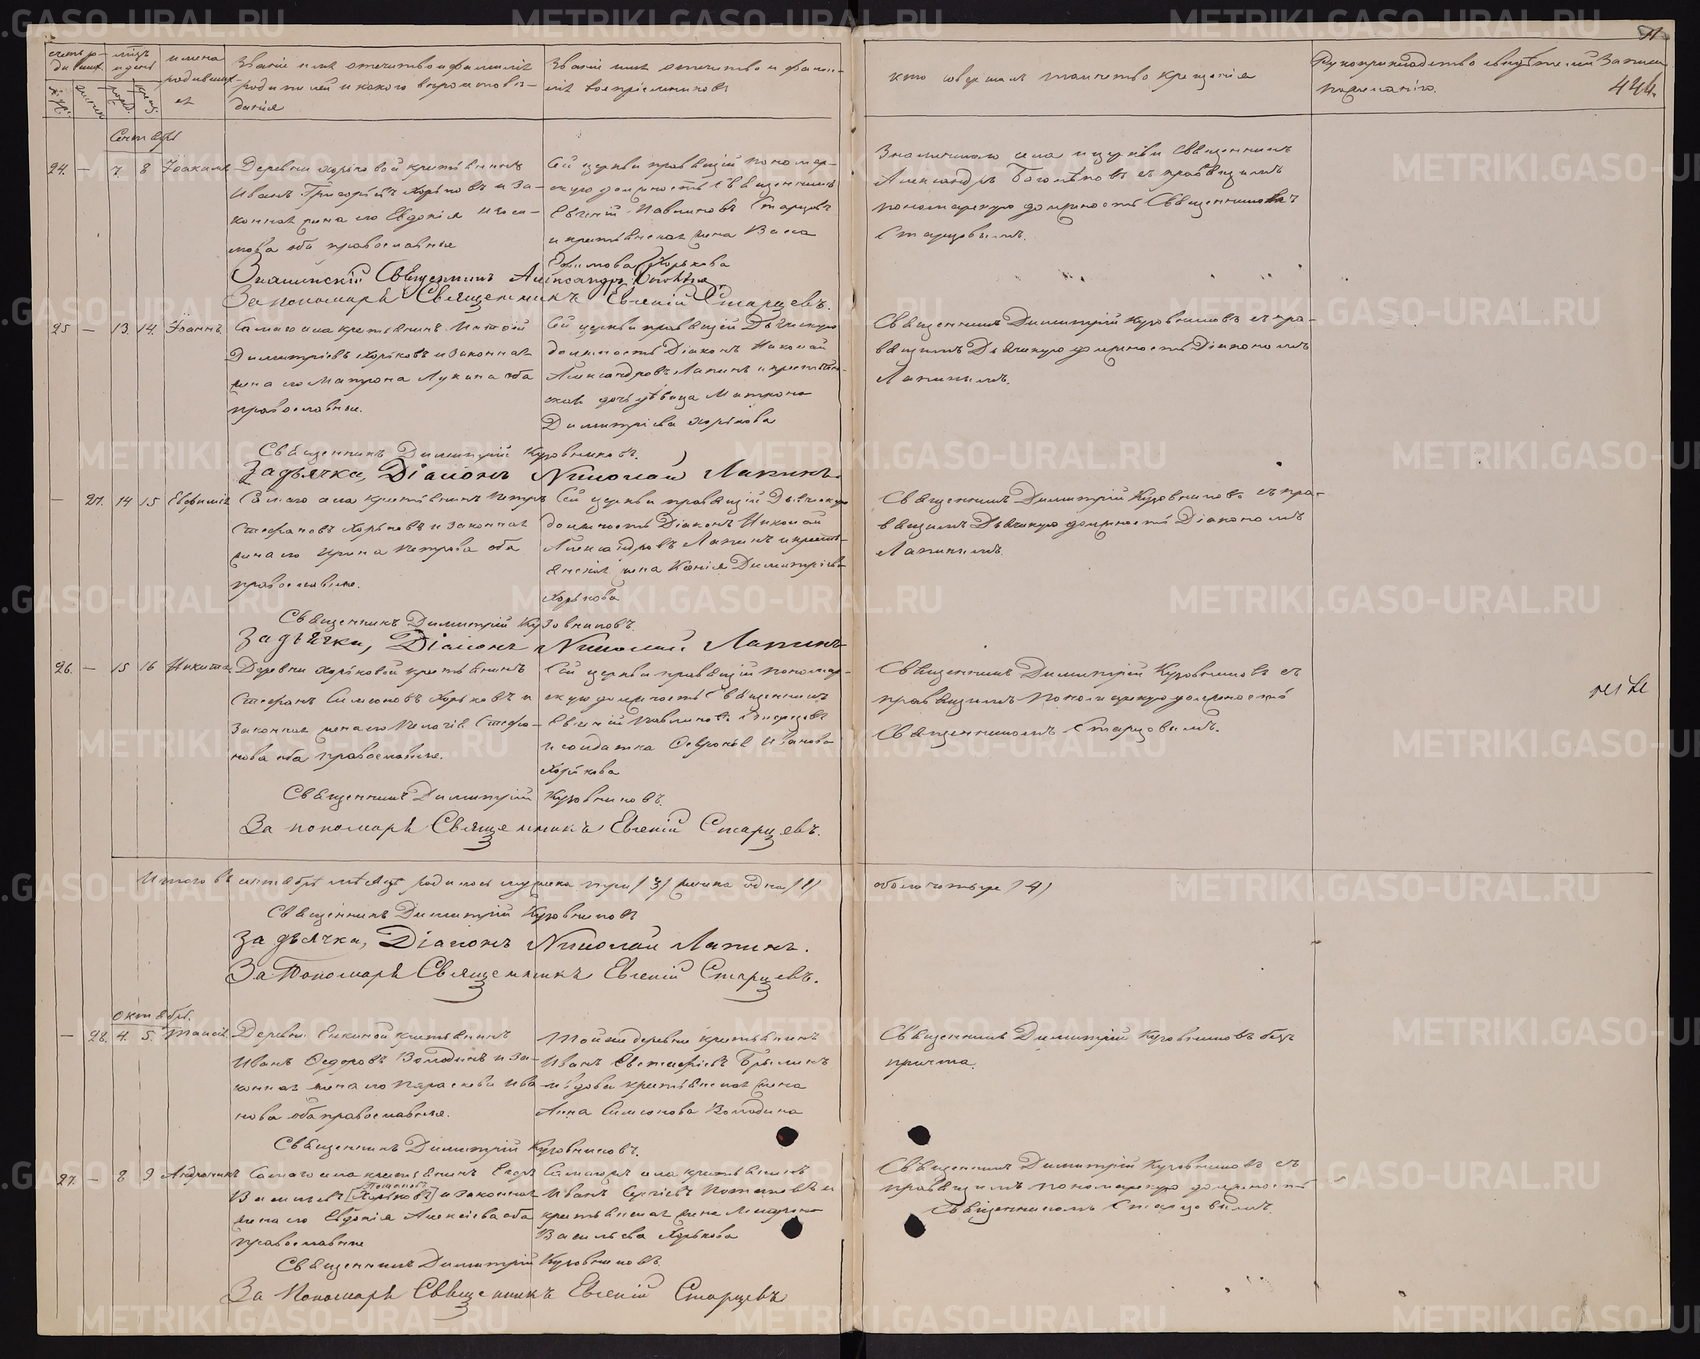 METRIKI.GASO-URAL.RU
444.
Сентябрь
24. — 7. 8 Іоакимъ
Деревни Хорьковой крестьянинъ
Иванъ Григорьевъ Хорьковъ и за-
конная жена его Евдокія
оба православные
Сей церкви правящій пономар-
скую должность Священникъ
Евгеній Павлиновъ Старцевъ
и крестьянская жена Васса
Хорькова
Знаменскаго села и церкви Священникъ
Александръ съ правящимъ
пономарскую должность Священникомъ
Старцовымъ.
Священникъ Александръ
За пономаря Священникъ Евгеній Старцевъ.
25 — 13. 14. Іоаннъ
Самаго села крестьянинъ
Димитріевъ Хорьковъ и законная
жена его Матрона Лукина оба
православные.
Сей церкви правящій Дьяческую
должность Діаконъ Николай
Александровъ Лапинъ и крестьян-
ская дочь девица Матрона
Димитріева Хорькова
Священникъ Димитрій Кузовниковъ съ пра-
вящимъ Дьяческую должность Діакономъ
Лапинымъ.
Священникъ Димитрій Кузовниковъ.
За дьячка, Діаконъ Николай Лапинъ.
— 27. 14 15 Евфимія
Самаго села крестьянинъ Петръ
Стефановъ Хорьковъ и законная
жена его Ирина Петрова оба
православные.
Сей церкви правящій Дьяческую
должность Діаконъ Николай
Александровъ Лапинъ и кресть-
янская жена Ксенія Димитріева
Хорькова
Священникъ Димитрій Кузовниковъ съ пра-
вящимъ Дьяческую должность Діакономъ
Лапинымъ.
Священникъ Димитрій Кузовниковъ.
За дьячка, Діаконъ Николай Лапинъ
26. — 15 16 Никита
Деревни Хорьковой крестьянинъ
Стефанъ Симеоновъ Хорьковъ и
законная жена его Пелагія Стефа-
нова оба православные.
Сей церкви правящій пономар-
скую должность Священникъ
Евгеній Павлиновъ Старцовъ
и солдатка Февронія Иванова
Хорькова
Священникъ Димитрій Кузовниковъ съ
правящимъ пономарскую должность
Священникомъ Старцовымъ.
Священникъ Димитрій Кузовниковъ.
За пономаря Священникъ Евгеній Старцевъ.
Итого въ сентябрѣ мѣсяцѣ родилось мужска три /3/ женска одна /1/
обоего четыре /4/
Священникъ Димитрій Кузовниковъ
За дьячка, Діаконъ Николай Лапинъ.
За Пономаря Священникъ Евгеній Старцевъ.
Октябрь.
— 28. 4. 5. Таисія
Деревни Елкиной крестьянинъ
Иванъ Ѳедоровъ Володинъ и за-
конная жена его Параскева Ива-
нова оба православные.
Тойже деревни крестьянинъ
Иванъ Евстафіевъ
крестьянская жена
Анна Симеонова Володина
Священникъ Димитрій Кузовниковъ безъ
причта.
Священникъ Димитрій Кузовниковъ.
27. — 8 9 Андроникъ
Самаго села крестьянинъ Егоръ
Потаповъ
Васильевъ [Хорьковъ] и законная
жена его Евдокія Алексіева оба
православные
Самаго села крестьянинъ
Иванъ Сергіевъ Потаповъ и
крестьянская жена Матрона
Васильева Хорькова
Священникъ Димитрій Кузовниковъ съ
правящимъ пономарскую должность
Священникомъ Старцовымъ.
Священникъ Димитрій Кузовниковъ.
За Пономаря Священникъ Евгеній Старцевъ